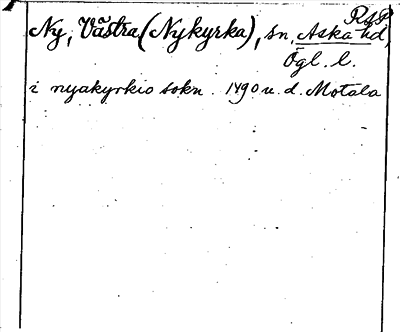 RAP
Ny, Västra (Nykyrka), sn, Aska hd,
Ögl. l.
i nyakyrkio sokn. 1490 u. d. Motala